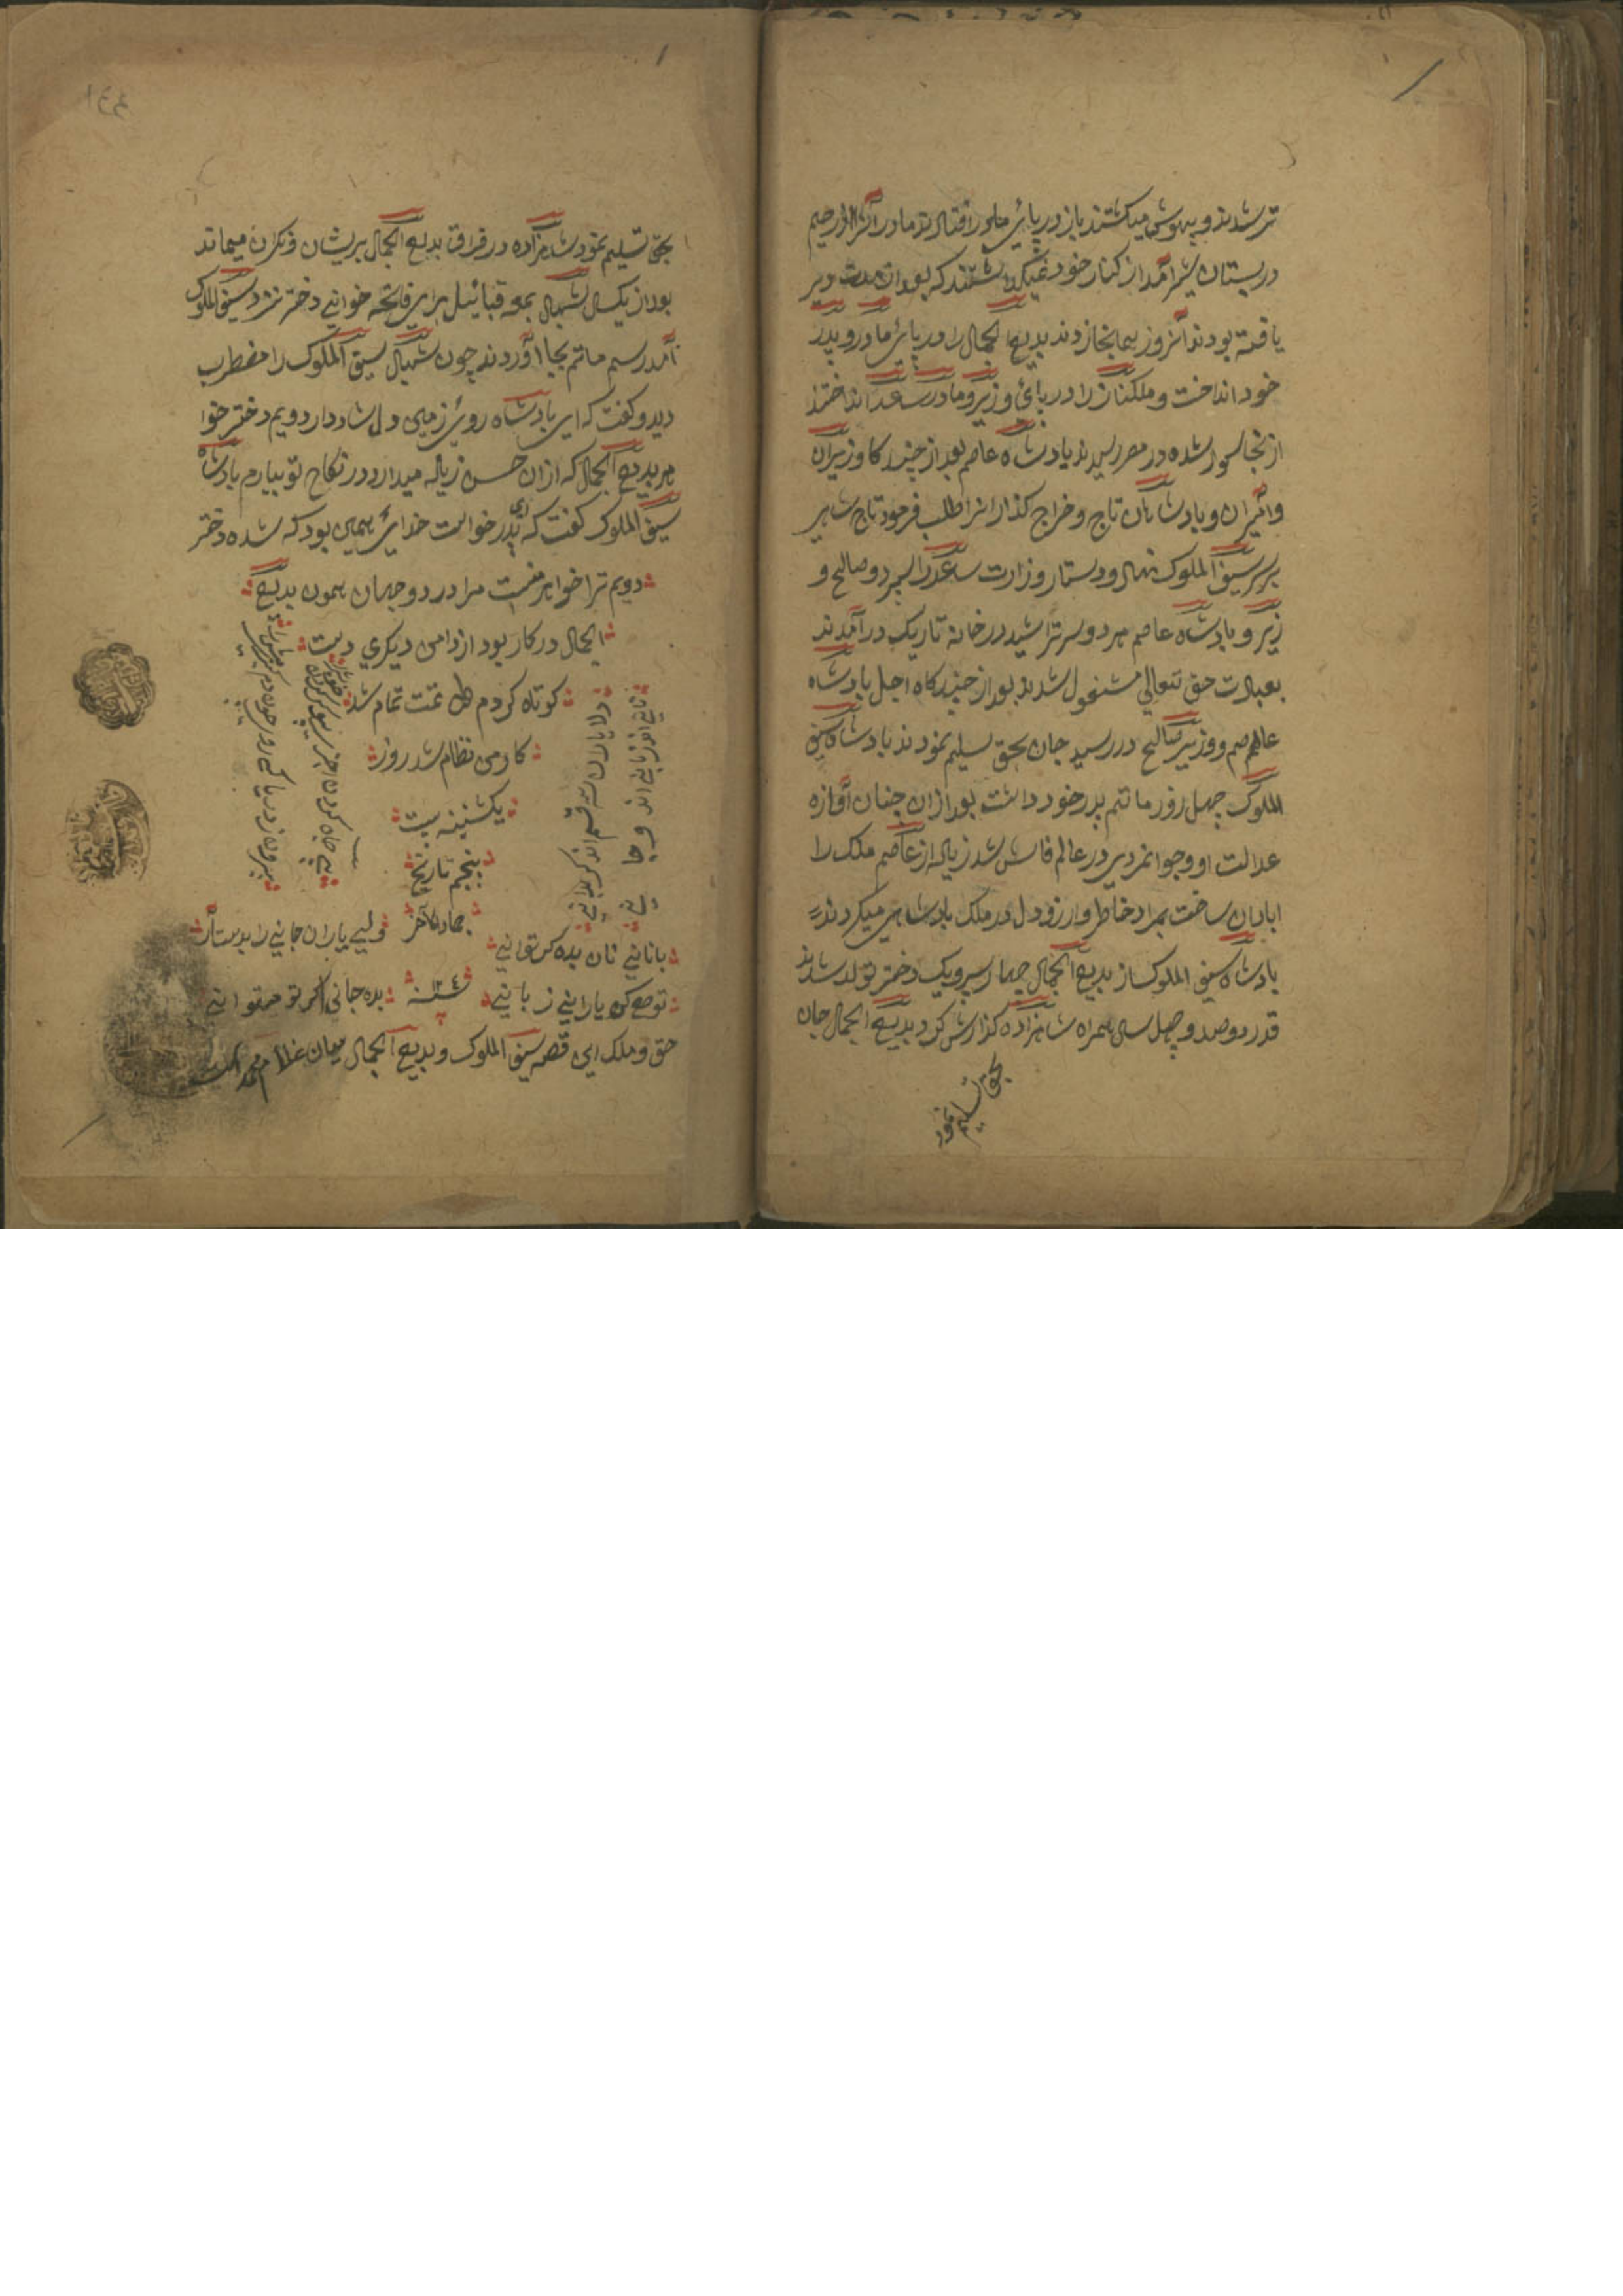 تر شدند و بیهوش میکشتند باز در پائ مادر افتادند مادر آنرا از رحیم
در پستان شیر آمد از کنار خود نمیکذاشتند که بعد از مدت دیر
یافته بودند آنروز بهمانجا زدند بدیع الجمال را در پائ مادر و پدر
خود انداخت و ملکناز را در پائ وزیر و مادر سعد انداختند
از آنجا سوار شده در مصر رسیدند پادشاه عاصم بعد از چند کا وزیران
و امیران و پادشاهان تاج و خراج کذار انرا طلب فرمود تاج شاهی
بر سر سیف الملوک نهاد و دستار وزارت سعد را سپرد و صالح و
زیر و پادشاه عاصم هر دو سر تراشید در خانه تاریک درآمدند
بعبادت حق تعالی مشغول شدند بعد از چند کاه اجل پادشاه
عاصم و وزیر صالح در رسید جان بحق تسلیم نمودند پادشاه سیف
الملوک چهل روز ماتم پدر خود داشت بعد ازان چنان آوازه
عدالت او و جوانمردی در عالم فاش شد زیاده از عاصم ملک را
ابادان ساخت بمراد خاطر و ارزو دل در ملک پادشاهی میکردند
پادشاه سیف الملوک از بدیع الجمال چهار پسر و یک دختر تولد شدند
قدر دوصد و چهل سال همراه شاهزاده کذارش کرد بدیع الجمال جان
بحق تسلیم نمود
بحق تسلیم نمود شاهزاده در فراق بدیع الجمال پریشان و نکران میماند
بعد از یکسال شهبال بمعه قبائیل برای فاتحه خوانی دختر نزد سیف الملوک
آمد رسم ماتم بجا آوردند چون شهبال سیف الملوک را مضطرب
دید و کفت که ای پادشاه روئ زمین دل شاد دار دویم دختر خوا
هر بدیع الجمال که ازان حسن زیاده میدارد در نکاح تو بیارم پادشاه
سیف الملوک کفت که ای پدر خواست خدائ همین بود که شده دختر
دویم ترا خواهر منست مرا در دو جهان همون بدیع
الجمال در کار بود از دامن دیکری دست
کوتاه کردم تمت تمام شد
کار من نظام شد روز
یکشنبه بیست
پنجم تاریخ
جماد الاخر
سنه ۱۲۴
دلا یاران سه قسم اند کر بدانی
زبانی اند و نانی اند و جانی
بنانی نان بده کر توانی
تواضع کن یارانی زبانی
ولی یاران جانی را بدست آر
بده جانی اکر تو میتوانی
حق و ملک این قصه سیف الملوک و بدیع الجمال میان غلام محمد است